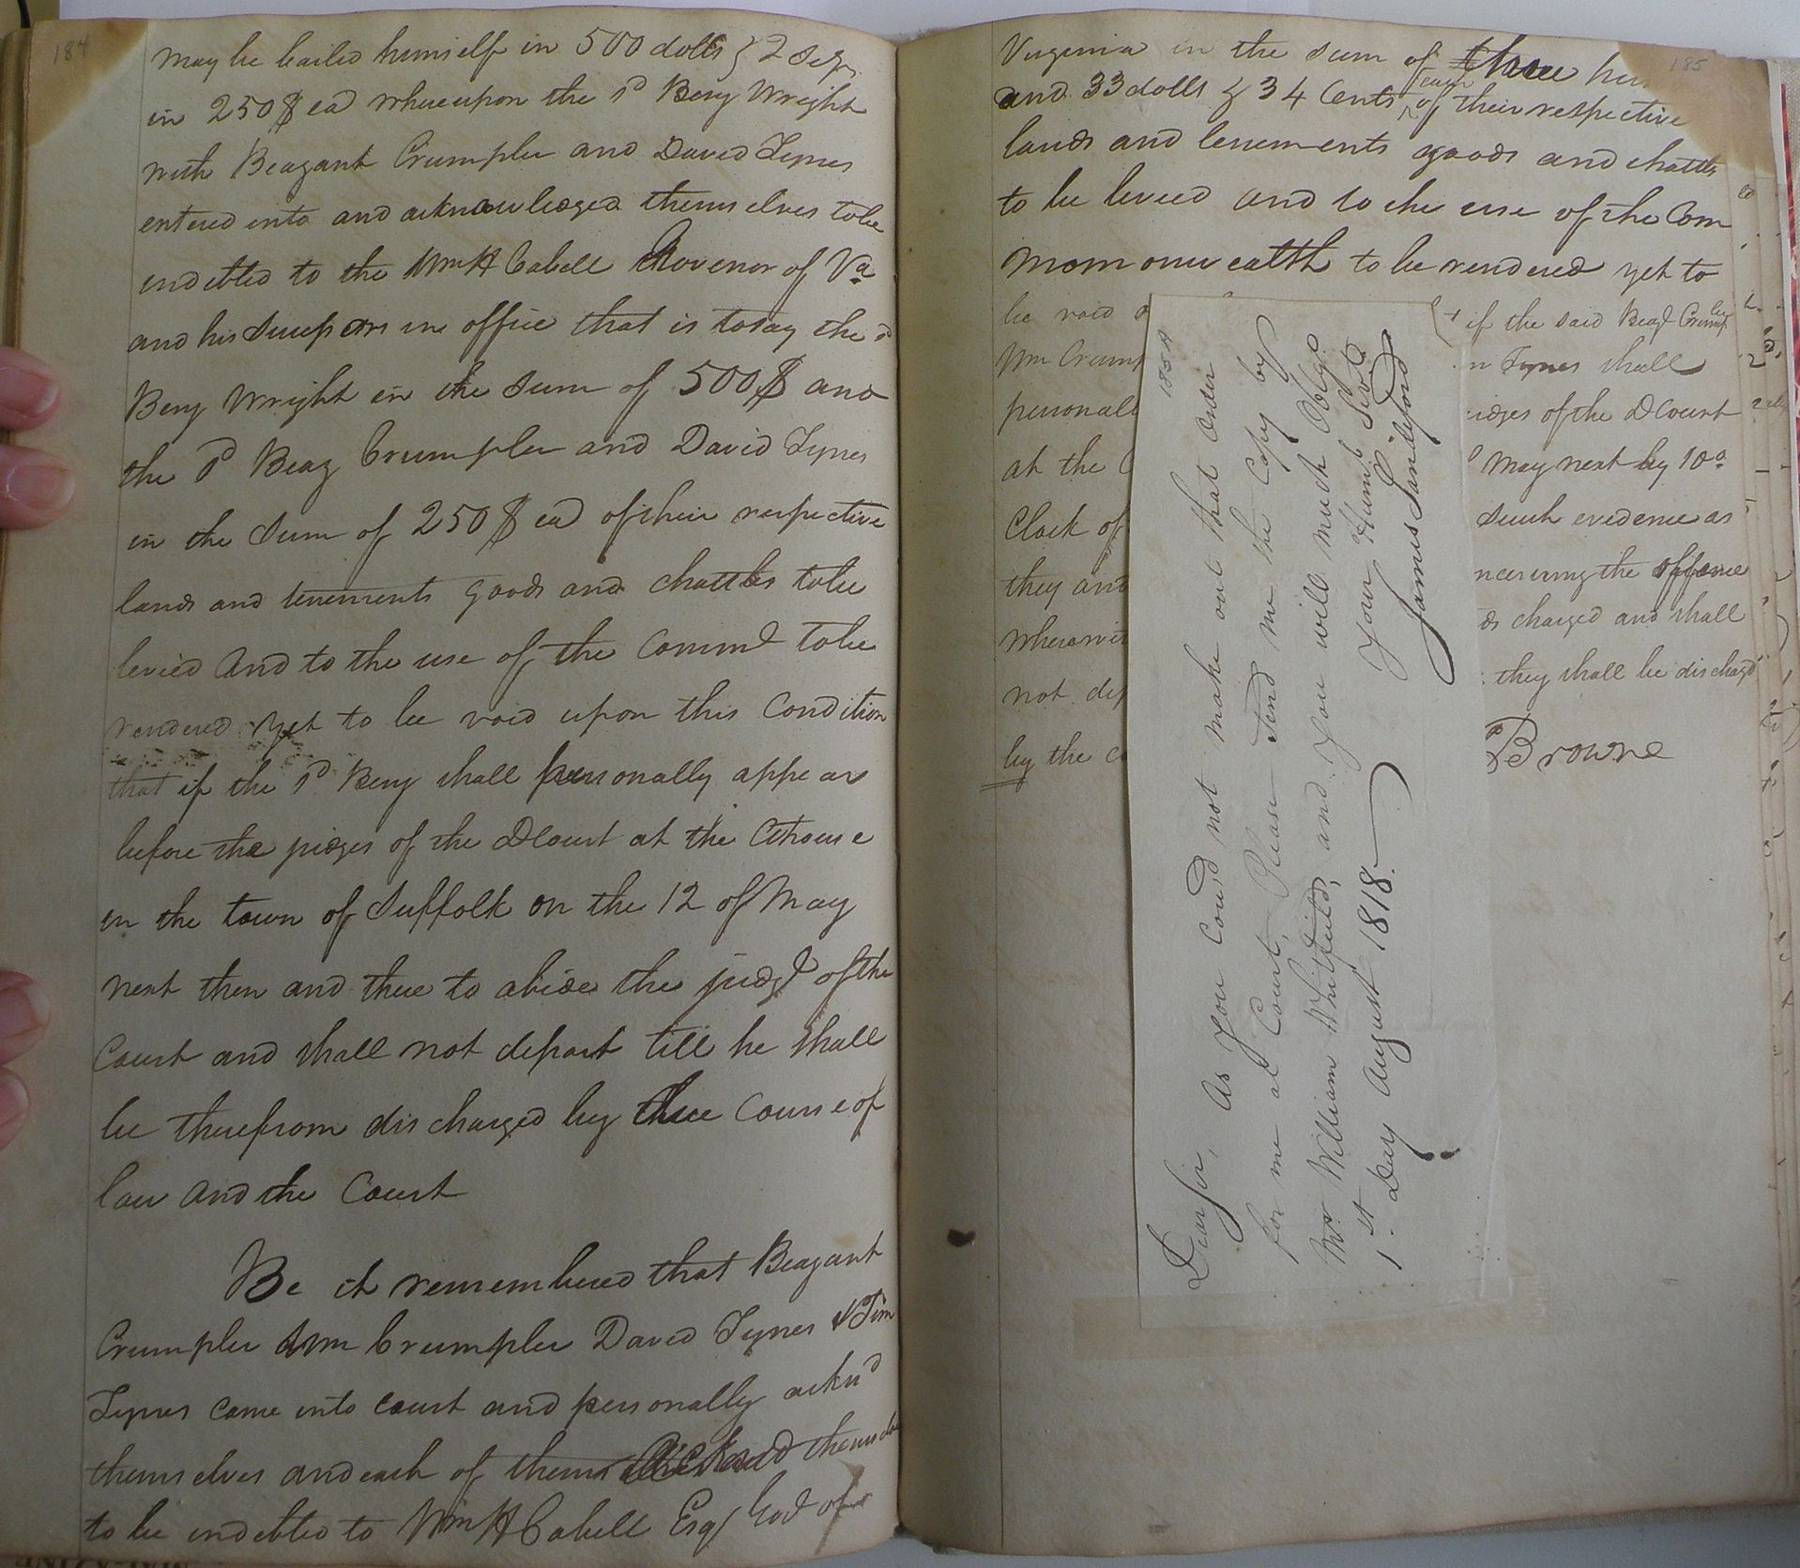 184
may be bailed himself in 500 dolls & 2
in 250$ ea whereupon the sd Beny Wright
with Beagant Crumpler and David Tynes
entered into and acknowledged themselves to be
indebted to the Wm H Cabell Govenor of Va
and his in office that is to say the sd
Beny Wright in the sum of 500$ and
the sd Beag Crumpler and David Tynes
in the sum of 250$ ea of their respective
lands and tenements goods and chattles to be
levied and to the use of the Commd to be
rendered yet to be void upon this Condition
that if the sd Beny shall personally appear
before the judges of the DCourt at the Cthouse
in the town of Suffolk on the 12 of May
next then and there to abide the judgt of the
Court and shall not depart till he shall
be therefrom discharged by the Course of
law and the Court
Be it remembered that Beagant
Crumpler Wm Crumpler David Tynes & Tim
Tynes came into court and personally acknd
themselves and each of them themselves
to be indebted to Wm H Cabell Esqr Govr of
185
Virginia in the sum of three
and 33 dolls & 34 Cents each of their respective
lands and tenements goods and chattls
to be levied and to the use of the Com
monwealth to be rendered yet to
be void if the said Beagt Crumpler
Wm Crump n Tynes shall
personall udges of the DCourt
at the C May next by 10 o
Clock of such evidence as
they and ncerning the offence
wherewit ds charged and shall
not dep they shall be dischargd
by the co Browne
185A
Dear Sir, As you Could not make out that order
for me at Court, Please Send me the Copy by
Mr. William Whitfield, and you will much Oblige
Your Humb. Servt.
1st. Day August 1818. James Sandeford